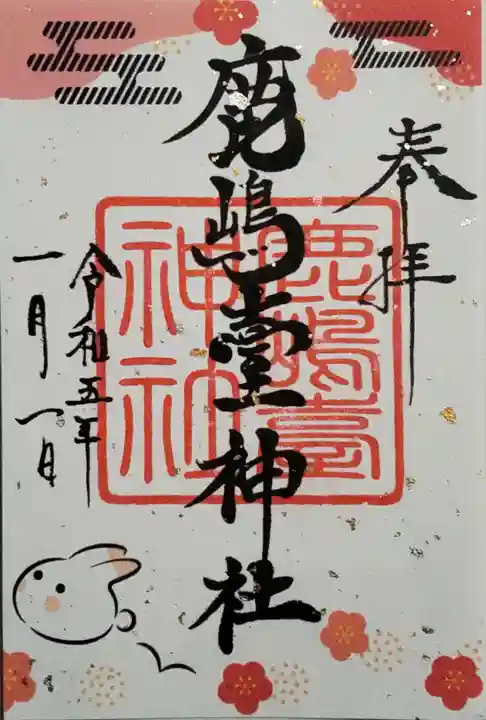 奉拝
鹿嶋臺神社
鹿嶋臺
神社
令和五年
一月一日